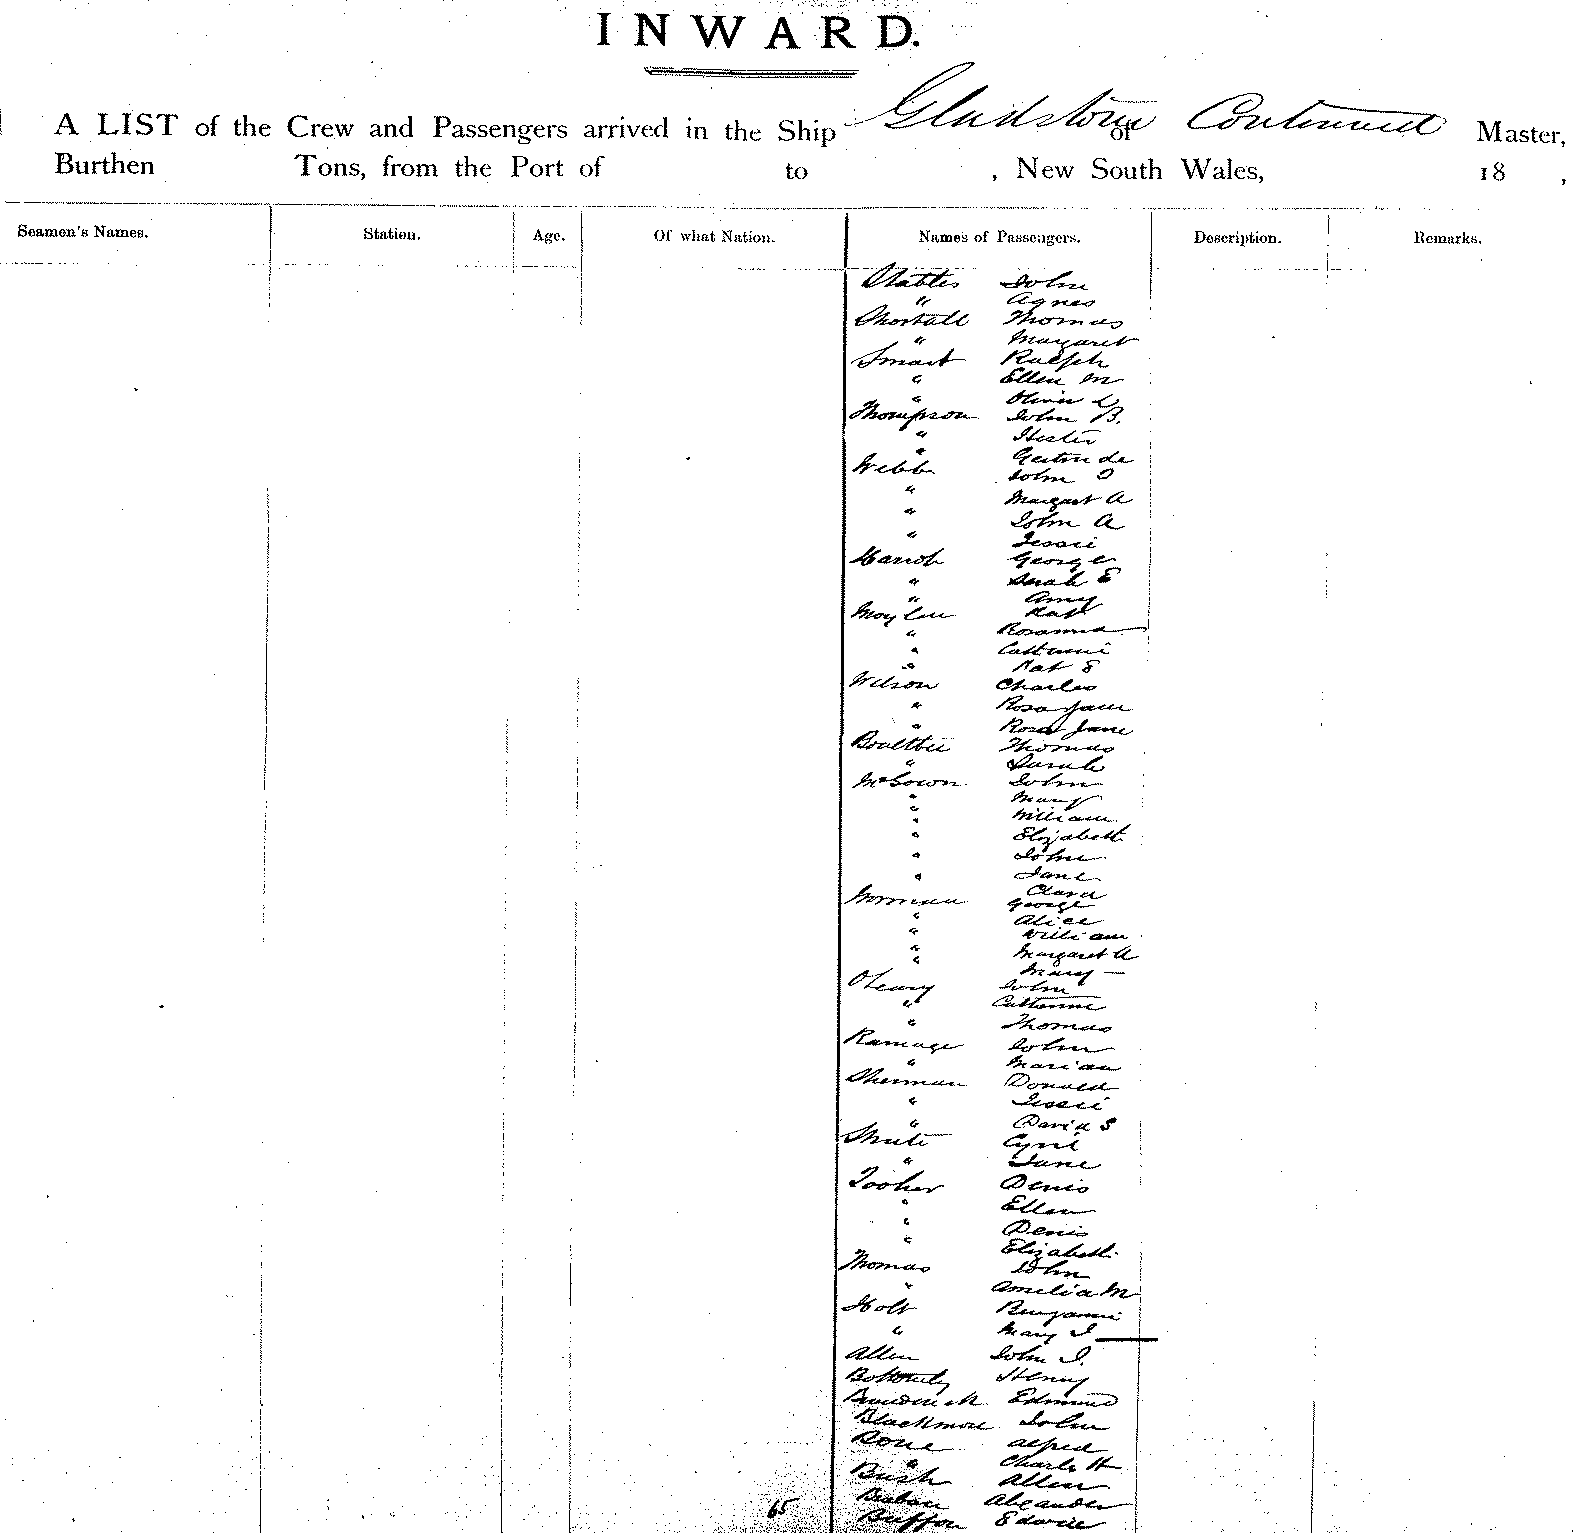 INWARD.
A LIST of the Crew and Passengers arrived in the Ship Gladstone of Continued Master,
Burthen Tons, from the Port of to , New South Wales, 18 ,
Seamen's Names. Station. Age. Of what Nation. Names of Passengers. Description. Remarks.
Stables John
" Agnes
Shortall Thomas
" Margaret
Smart Ralph
" Ellen M
" Oliver
Thompson John B.
" Hester
" Gertrude
Webb John
" Margaret A
" John A
" Jessie
George
" Sarah E
" Amy
Pat
" Rosanna
" Catherine
" Pat
Wilson Charles
" Rosa Jane
" Rosa Jane
Boultbee Thomas
" Sarah
McGown John
" Mary
" William
" Elizabeth
" John
" Jane
Clara
Norman George
" Alice
" William
" Margaret A
" Mary
O'Leary John
" Catherine
" Thomas
Ramage John
" Marian
Sherman Donald
" Jessie
" David S
Shute Cyril
" Jane
Tooher Denis
" Ellen
" Denis
" Elizabeth
Thomas John
" Amelia M
Holt Benjamin
" Mary J
Allen John J.
Bottomley Henry
Edmund
Blackmore John
Bone Alfred
" Charles H
Bush Allen
Alexander
65 Buffon Edwin